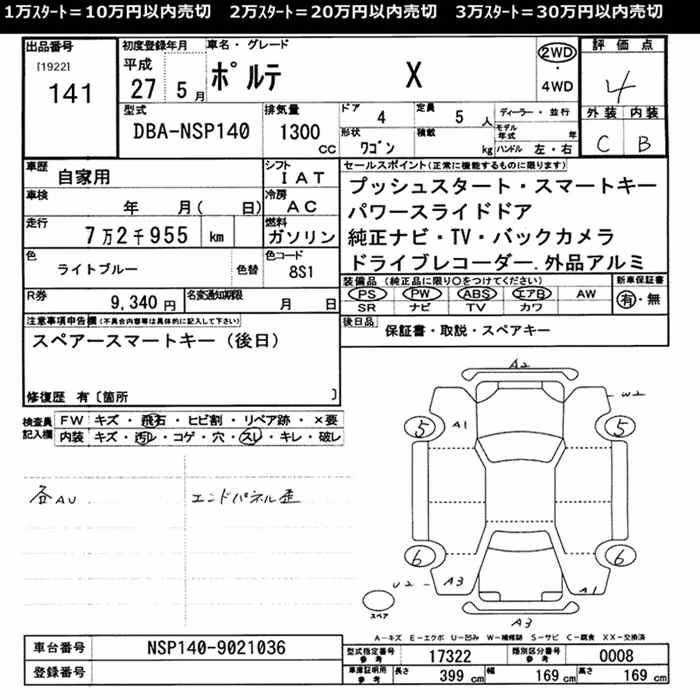 1万ｽﾀｰﾄ＝10万円以内売切　2万ｽﾀｰﾄ＝20万円以内売切　3万ｽﾀｰﾄ＝30万円以内売切
出品番号 初度登録年月 車名・グレード 2WD 評価点
[1922] 平成 ・
141 27 5月 ポルテ X 4WD 4
型式 排気量 ドア 4 定員 5人 ディーラー・並行 外装 内装
DBA-NSP140 1300cc 形状 ワゴン 積載 kg モデル年式 年 ハンドル 左・右 C B
車歴 自家用 シフト IAT セールスポイント(正常に機能するものに限ります)
車検 年 月( 日) 冷房 AC プッシュスタート・スマートキー
パワースライドドア
走行 7万2千955 km 燃料 ガソリン 純正ナビ・TV・バックカメラ
色 ライトブルー 色替 色コード 8S1 ドライブレコーダー.外品アルミ
R券 9,340円 名変通知期限 月 日 装備品(純正品に限り○をつけてください) 新車保証書
PS PW ABS エアB AW 有・無
SR ナビ TV カワ
注意事項申告欄(不具合内容等は具体的に記入して下さい) 後日品 保証書・取説・スペアキー
スペアースマートキー(後日)
修復歴 有〔箇所 〕
検査員 FW キズ・飛石・ヒビ割・リペア跡・×要
記入欄 内装 キズ・汚レ・コゲ・穴・スレ・キレ・破レ
A2
W2
A1
5 5
各AU エンドパネル歪
6 6
U2 A3 A1
スペア
A3
A－キズ E－エクボ U－凹み W－補修跡 S－サビ C－腐食 XX－交換済
車台番号 NSP140-9021036 型式指定番号 参考 17322 類別区分番号 参考 0008
登録番号 車庫証明用 参考 長さ 399cm 幅 169cm 高さ 169cm